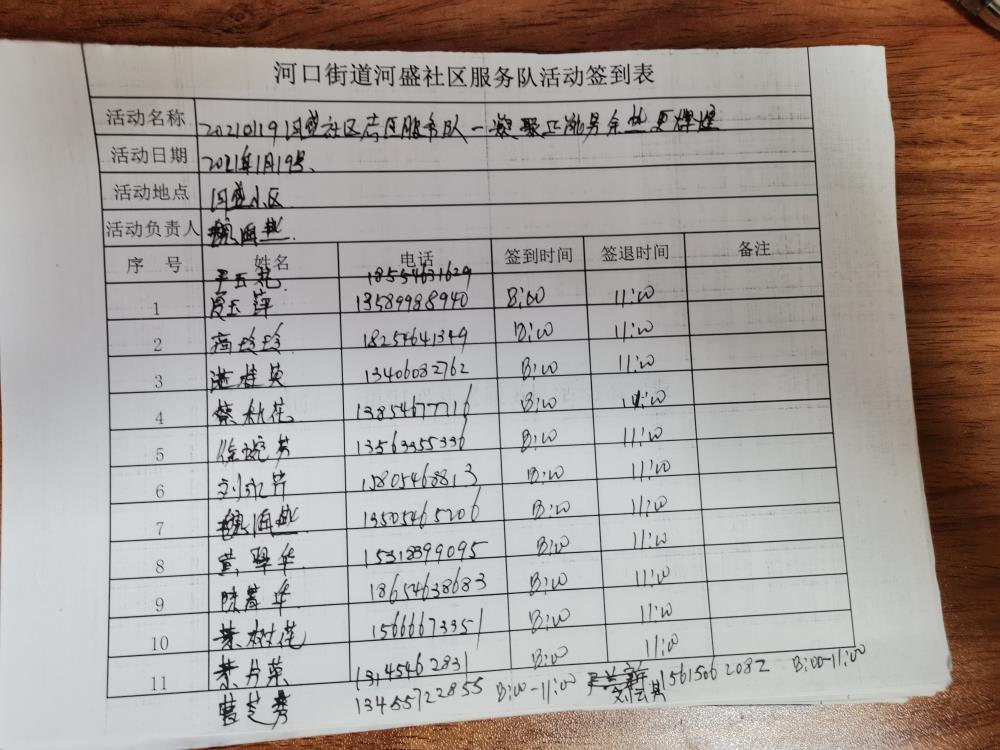 河口街道河盛社区服务队活动签到表
活动名称 20210119河盛社区志愿服务队一凝聚正能量余热更辉煌
活动日期 2021年1月19号.
活动地点 河盛小区
活动负责人 魏海燕.
序 号 姓名 电话 签到时间 签退时间 备注
18554631629
1 13589988940 8:00 11:00
2 玲玲. 18254641349 8:00 11:00
3 桂英 13406082762 8:00 11:00
4 蔡秋花 13854677716 8:00 11:00
5 徐婉芳 13563355336 8:00 11:00
6 刘永芹 15805468813 8:00 11:00
7 魏海燕 13505465206 8:00 11:00
8 翠华 15318399095 8:00 11:00
9 陈华 18654638683 8:00 11:00
10 树花 15666673351 8:00 11:00
11 13145462831 8:00 11:00
芝秀 13455722855 8:00-11:00 15615062082 8:00-11:00